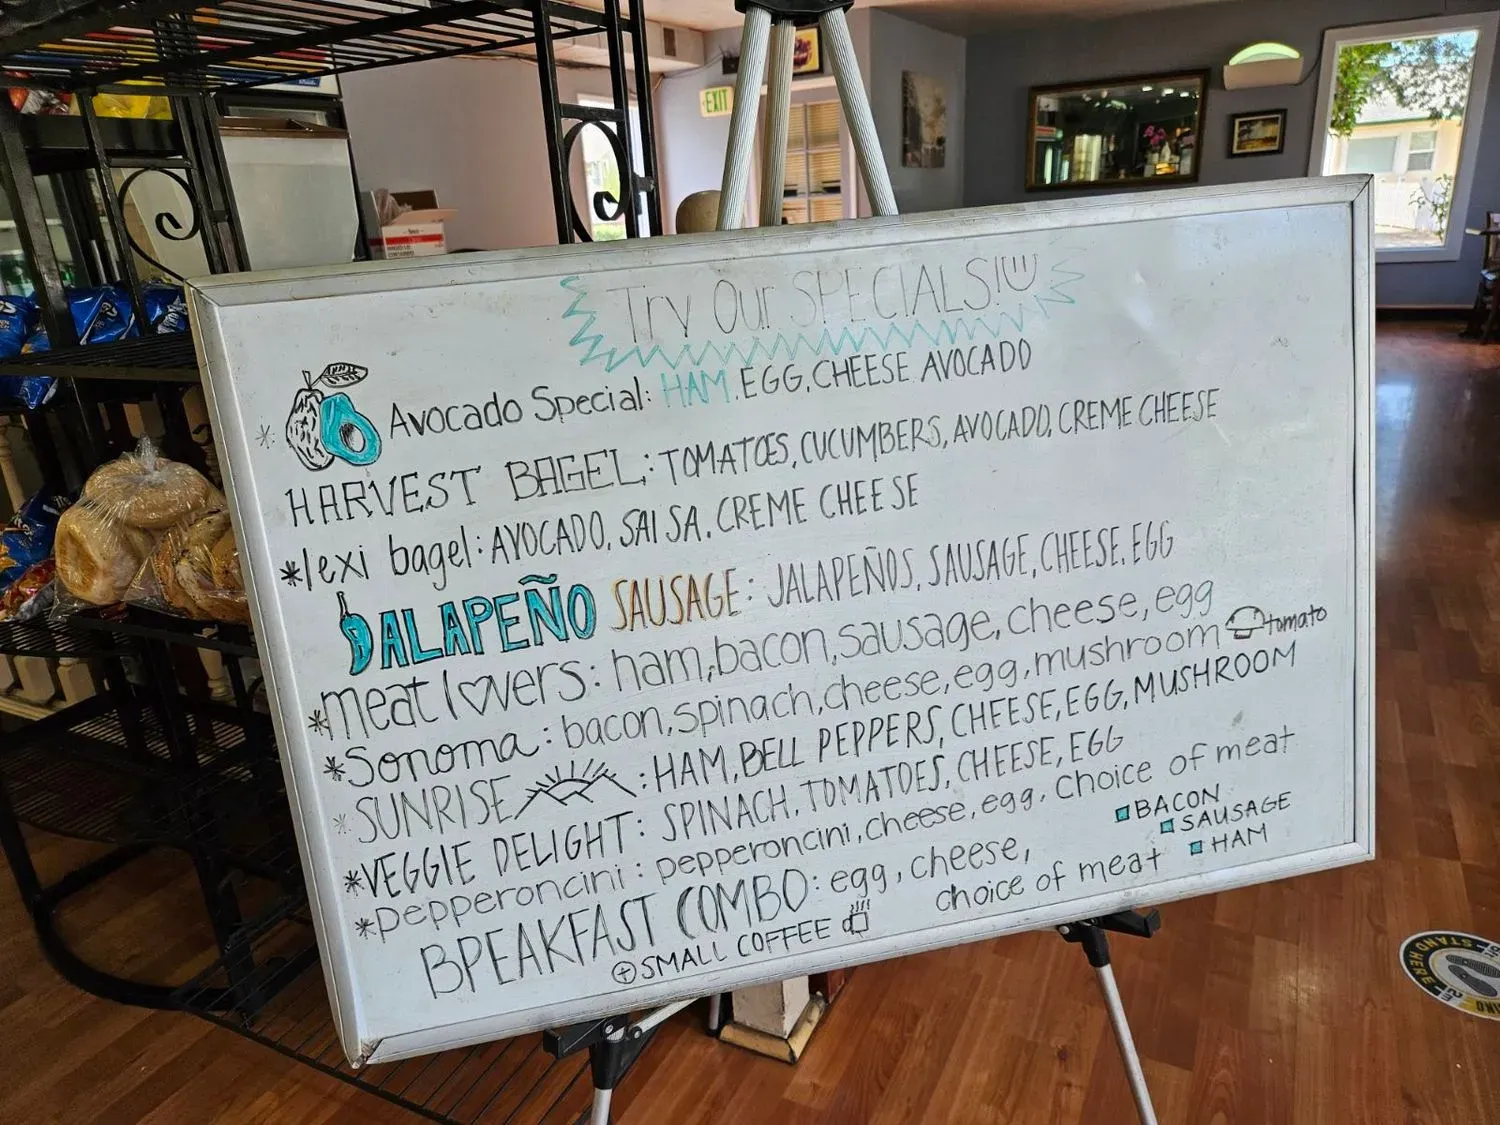 EXIT
Try Our SPECIALS!
Avocado Special: HAM, EGG, CHEESE AVOCADO
HARVEST BAGEL: TOMATOES, CUCUMBERS, AVOCADO, CREME CHEESE
*lexi bagel: AVOCADO, SALSA, CREME CHEESE
JALAPEÑO SAUSAGE: JALAPEÑOS, SAUSAGE, CHEESE, EGG
*meat lovers: ham, bacon, sausage, cheese, egg
*Sonoma: bacon, spinach, cheese, egg, mushroom tomato
*SUNRISE: HAM, BELL PEPPERS, CHEESE, EGG, MUSHROOM
*VEGGIE DELIGHT: SPINACH, TOMATOES, CHEESE, EGG
*pepperoncini: pepperoncini, cheese, egg, choice of meat
BREAKFAST COMBO: egg, cheese, choice of meat
+ SMALL COFFEE
BACON
SAUSAGE
HAM
STAND HERE